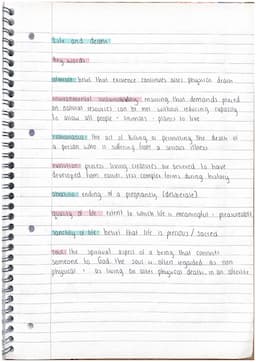 Life and death
Key words
afterlife belief that existence continues after physical death
environmental sustainability ensuring that demands placed
on natural resources can be met without reducing capacity
to allow all people + animals + plants to live
euthanasia the act of killing or permitting the death of
a person who is suffering from a serious illness
evolution process living creatures are believed to have
developed from earlier, less complex forms during history
abortion ending of a pregnancy (deliberate)
quality of life extent to which life is meaningful + pleasurable
sanctity of life belief that life is precious / sacred
soul the spiritual aspect of a being that connects
someone to God. The soul is often regarded as non
physical + as living on after physical death, in an afterlife